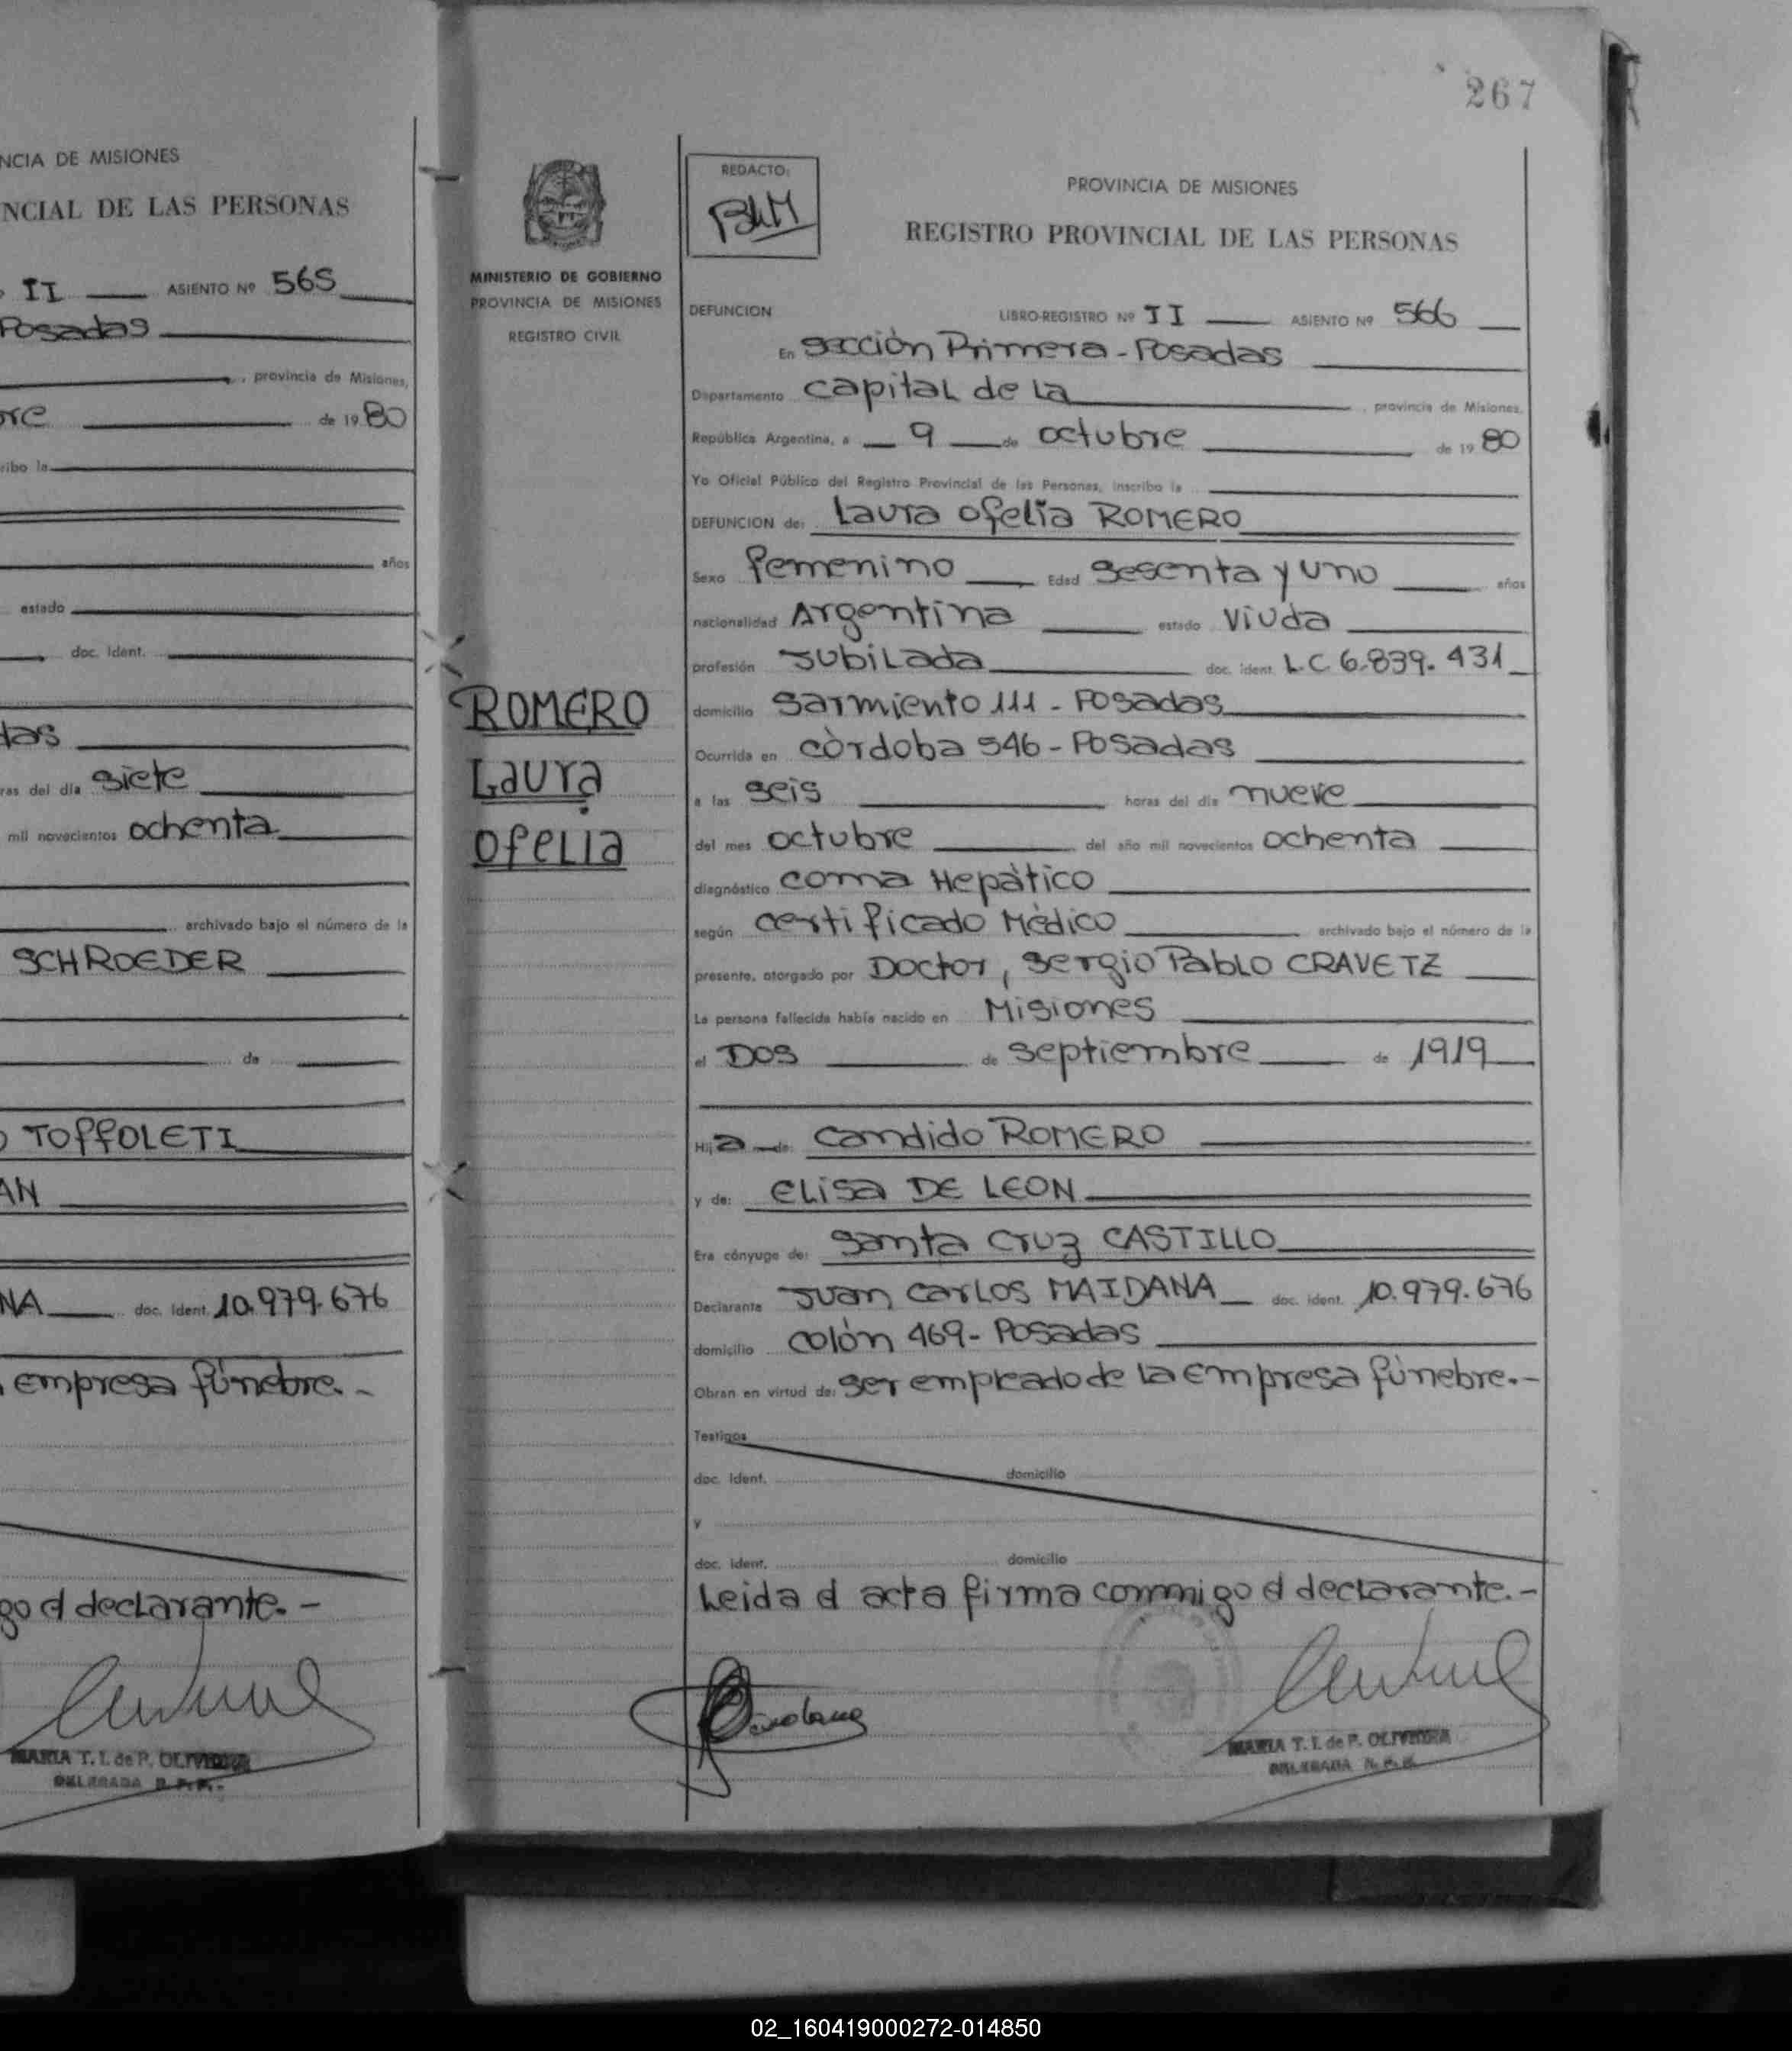 NCIA DE MISIONES
NCIAL DE LAS PERSONAS
II ASIENTO Nº 565
Posadas
, provincia de Misiones,
bre de 1980
ribo la
años
estado
doc. ident.
das
ras del día siete
mil novecientos ochenta
archivado bajo el número de la
SCHROEDER
de
O TOFFOLETI
AN
NA doc. ident. 10.979.676
empresa fúnebre.-
go el declarante.-
MARIA T. I. de P. OLIVEIRA
DELEGADA R. P. P.
267
MINISTERIO DE GOBIERNO
PROVINCIA DE MISIONES
REGISTRO CIVIL
ROMERO
Laura
Ofelia
REDACTO:
PROVINCIA DE MISIONES
REGISTRO PROVINCIAL DE LAS PERSONAS
DEFUNCION LIBRO-REGISTRO Nº II ASIENTO Nº 566
En Sección Primera - Posadas
Departamento Capital de la provincia de Misiones,
República Argentina, a 9 de octubre de 1980
Yo Oficial Público del Registro Provincial de las Personas, inscribo la
DEFUNCION de: Laura Ofelia ROMERO
Sexo femenino Edad sesenta y uno años
nacionalidad Argentina estado Viuda
profesión Jubilada doc. ident. L.C 6.839.431
domicilio Sarmiento 111 - Posadas
Ocurrida en Còrdoba 546 - Posadas
a las seis horas del día nueve
del mes octubre del año mil novecientos ochenta
diagnóstico coma Hepàtico
según certificado Mèdico archivado bajo el número de la
presente, otorgado por Doctor, Sergio Pablo CRAVETZ
La persona fallecida había nacido en Misiones
el Dos de septiembre de 1919
Hija de: Candido ROMERO
y de: Elisa DE LEON
Era cónyuge de: Santa Cruz CASTILLO
Declarante Juan Carlos MAIDANA doc. ident. 10.979.676
domicilio Colón 469 - Posadas
Obran en virtud de: ser empleado de la empresa fùnebre.-
Testigos
doc. ident. domicilio
y
doc. ident. domicilio
Leida el acta firma conmigo el declarante.-
MARIA T. I. de P. OLIVEIRA
DELEGADA R. P. P.
02_160419000272-014850